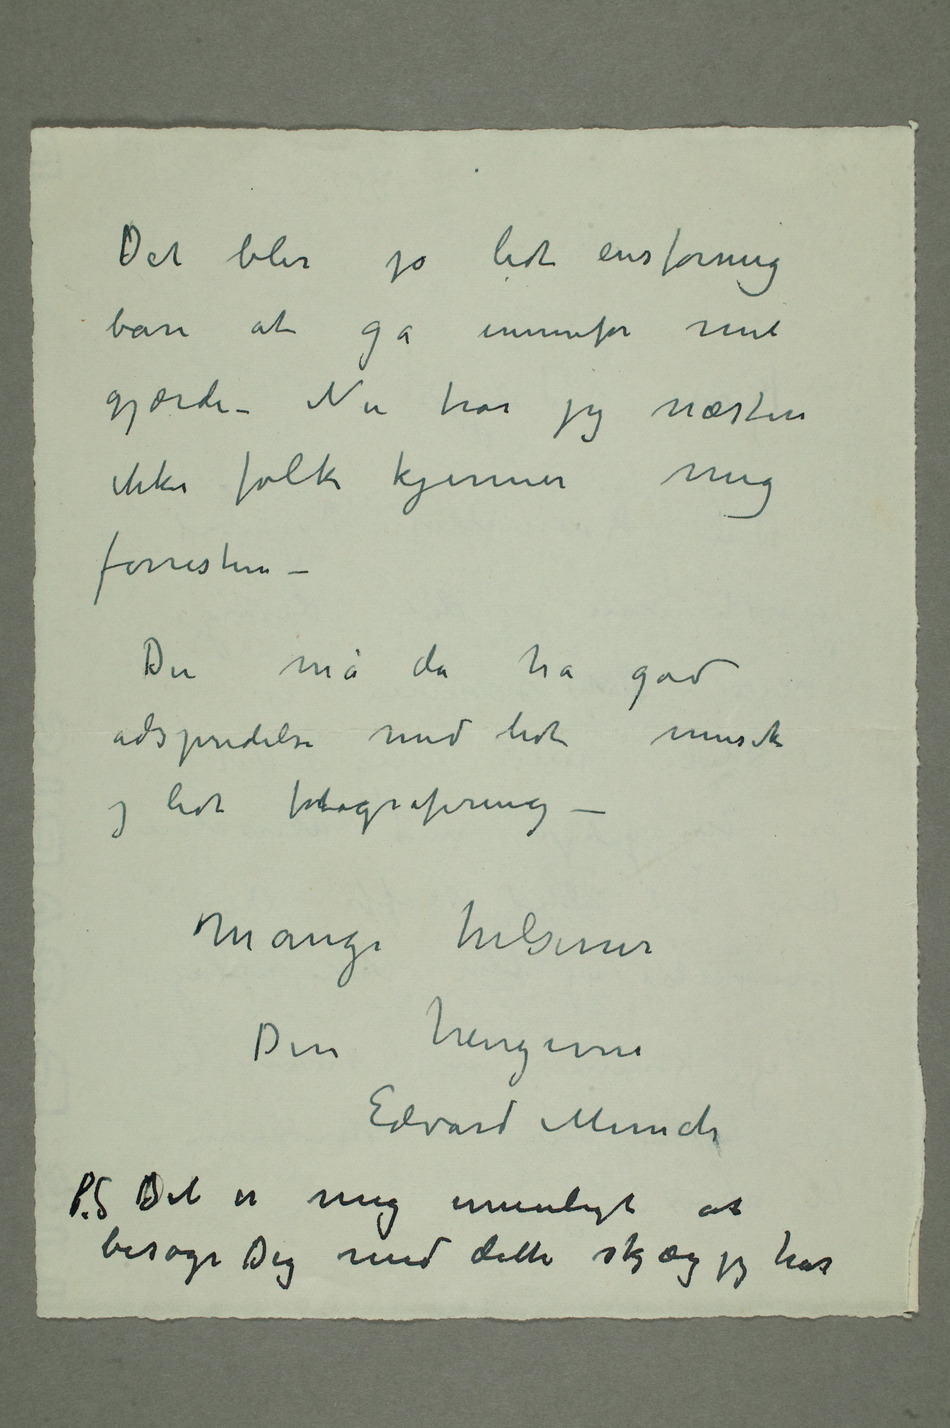 Det blir jo lidt ensformig
bare at gå innenfor mit
gjærde – Nu tror jeg næsten
ikke folk kjenner mig
forresten –
Du må da ha god
adspredelse med lidt musik
og lidt fotografering –
Mange hilsener
Din hengivne
Edvard Munch
P.S Det er mig umuligt at
besøge Dig med dette skjæg jeg har